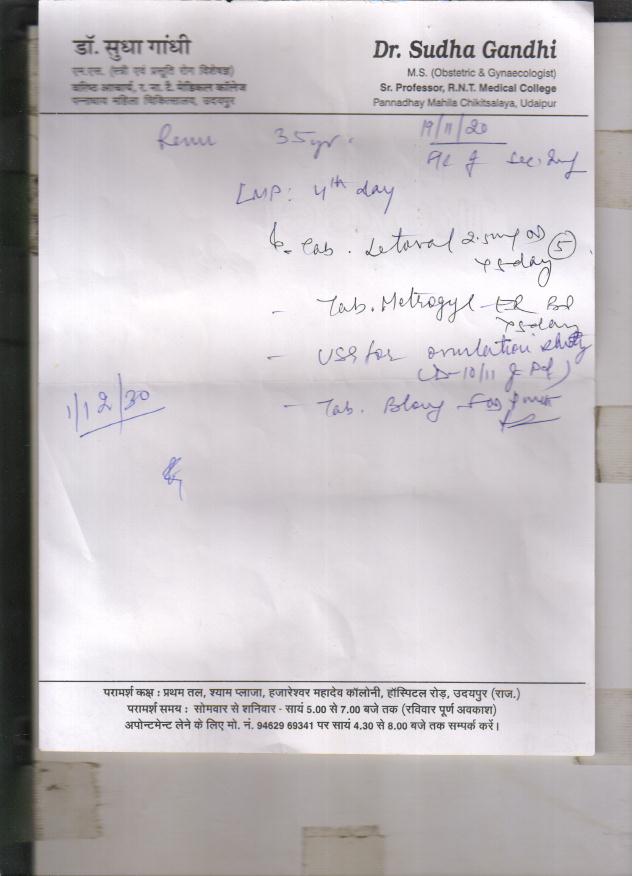 डॉ. सुधा गांधी
एम.एस. (स्त्री एवं प्रसूति रोग विशेषज्ञ)
वरिष्ठ आचार्य, र. ना. टै. मेडिकल कॉलेज
पन्नाधाय महिला चिकित्सालय, उदयपुर
Dr. Sudha Gandhi
M.S. (Obstetric & Gynaecologist)
Sr. Professor, R.N.T. Medical College
Pannadhay Mahila Chikitsalaya, Udaipur
Renu 35yr. 19/11/20
LMP: 4th day
Tab. Letoval 2.5mg OD 5
x5day
- Tab. Metrogyl BD
x5day
- USG for ovulation study
10/11
- Tab.
परामर्श कक्ष : प्रथम तल, श्याम प्लाजा, हजारेश्वर महादेव कॉलोनी, हॉस्पिटल रोड़, उदयपुर (राज.)
परामर्श समय : सोमवार से शनिवार - सायं 5.00 से 7.00 बजे तक (रविवार पूर्ण अवकाश)
अपोन्टमेन्ट लेने के लिए मो. नं. 94629 69341 पर सायं 4.30 से 8.00 बजे तक सम्पर्क करें।